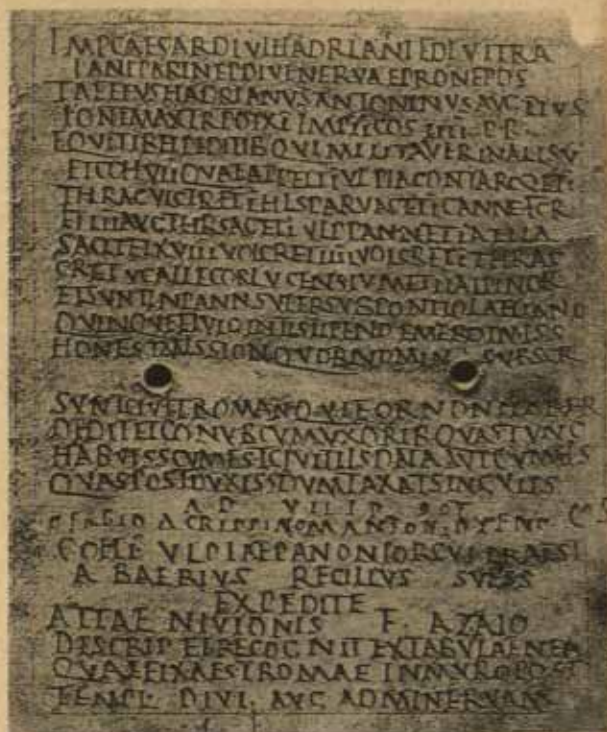 IMP CAESAR DIVI HADRIANI F DIVI TRA
IANI PARTH NEP DIVI NERVAE PRONEPOS
T AELIUS HADRIANVS ANTONINVS AVG PIVS
PONT MAX TR POT XI IMP II COS IIII P P
EQVITIB ET PEDITIB QVI MILITAVER IN ALIS V
ET COH VII QVAE APPELL I VLPIA CONTAR
THRAC VICTR ET I HISP ARVAC ET I CANNEF C R
ET III AVG THR SAG ET I VLP PANN ET I AELIA
SAG ET XVIII VOLC R ET II ET I THRAC
C R ET V CALLEC ET LVCENS ET II ALPINOR
ET SVNT IN PANN SVPER SVB PONTIO LAELIANO
QVINQVE ET VIGINTI STIPEND EMERIT DIMISS
HONEST MISSION QVOR NOMIN SVBSCR
SVNT CIVIT ROMAN QVI EOR NON HABER
DEDIT ET CONVB CVM VXORIB QVAS TVNC
HABVISS CVM EST CIVIT IIS DATA AVT CVM IIS
QVAS POST DVXISS DVMTAXAT SINGVLIS
A D VII ID OCT
C FABIO AGRIPPINO M ANTONIO ZENO COS
COH I VLPIAE PANONIOR CVI PRAEST
A BAEBIVS REGILLVS SVESS
EXPEDITE
ATTAE NIVIONIS F AZALO
DESCRIP ET RECOGNIT EX TABVLA ENEA
QVAE FIXA EST ROMAE IN MVRO POST
TEMPL DIVI AVG AD MINERVAM